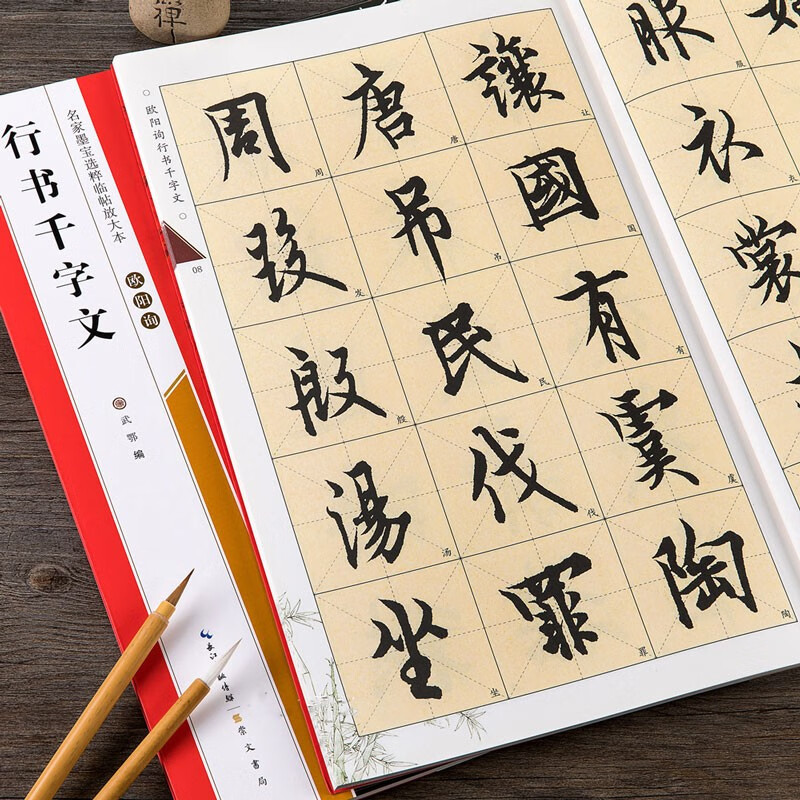 禪
行书千字文
名家墨宝选粹临帖放大本
欧阳询
武鄂 编
长江
传媒
崇文書局
欧阳询行书千字文
08
讓國有虞陶
让国有虞陶
唐吊民伐罪
唐吊民伐罪
周發殷湯坐
周发殷汤坐
服衣裳
服衣